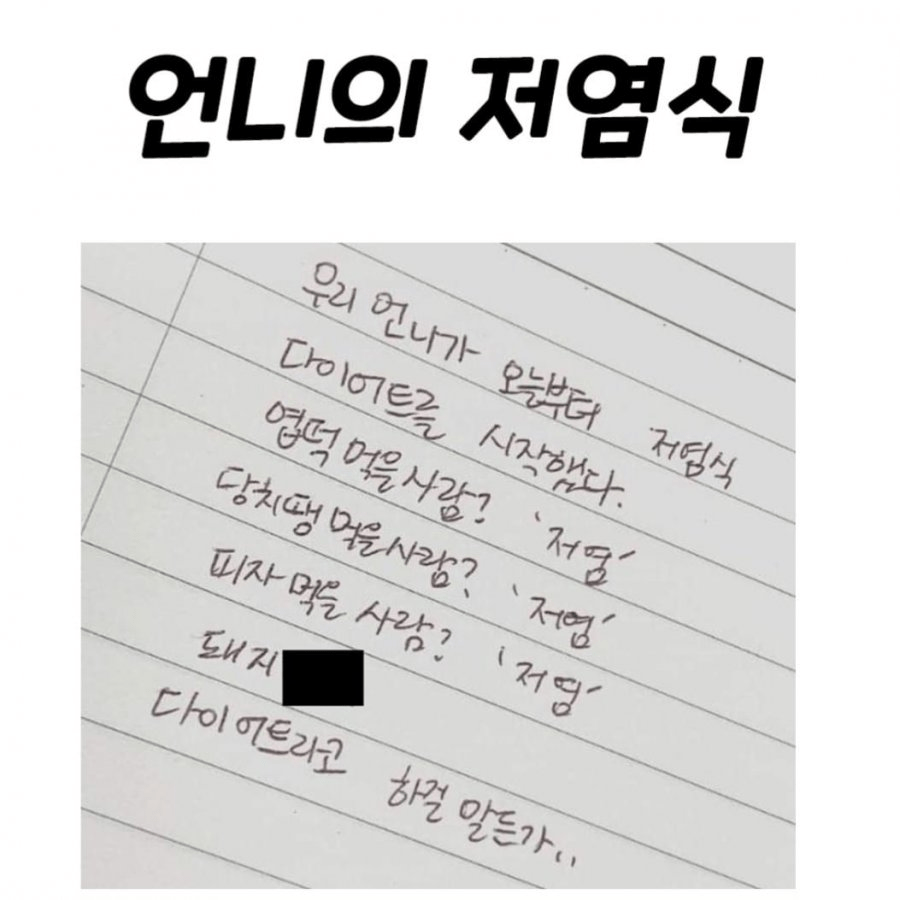 언니의 저염식
우리 언니가 오늘부터 저염식
다이어트를 시작했다.
엽떡 먹을사람? '저염'
당치땡 먹을사람? '저염'
피자 먹을 사람? '저염'
돼지
다이어트라고 하걸 말든가..